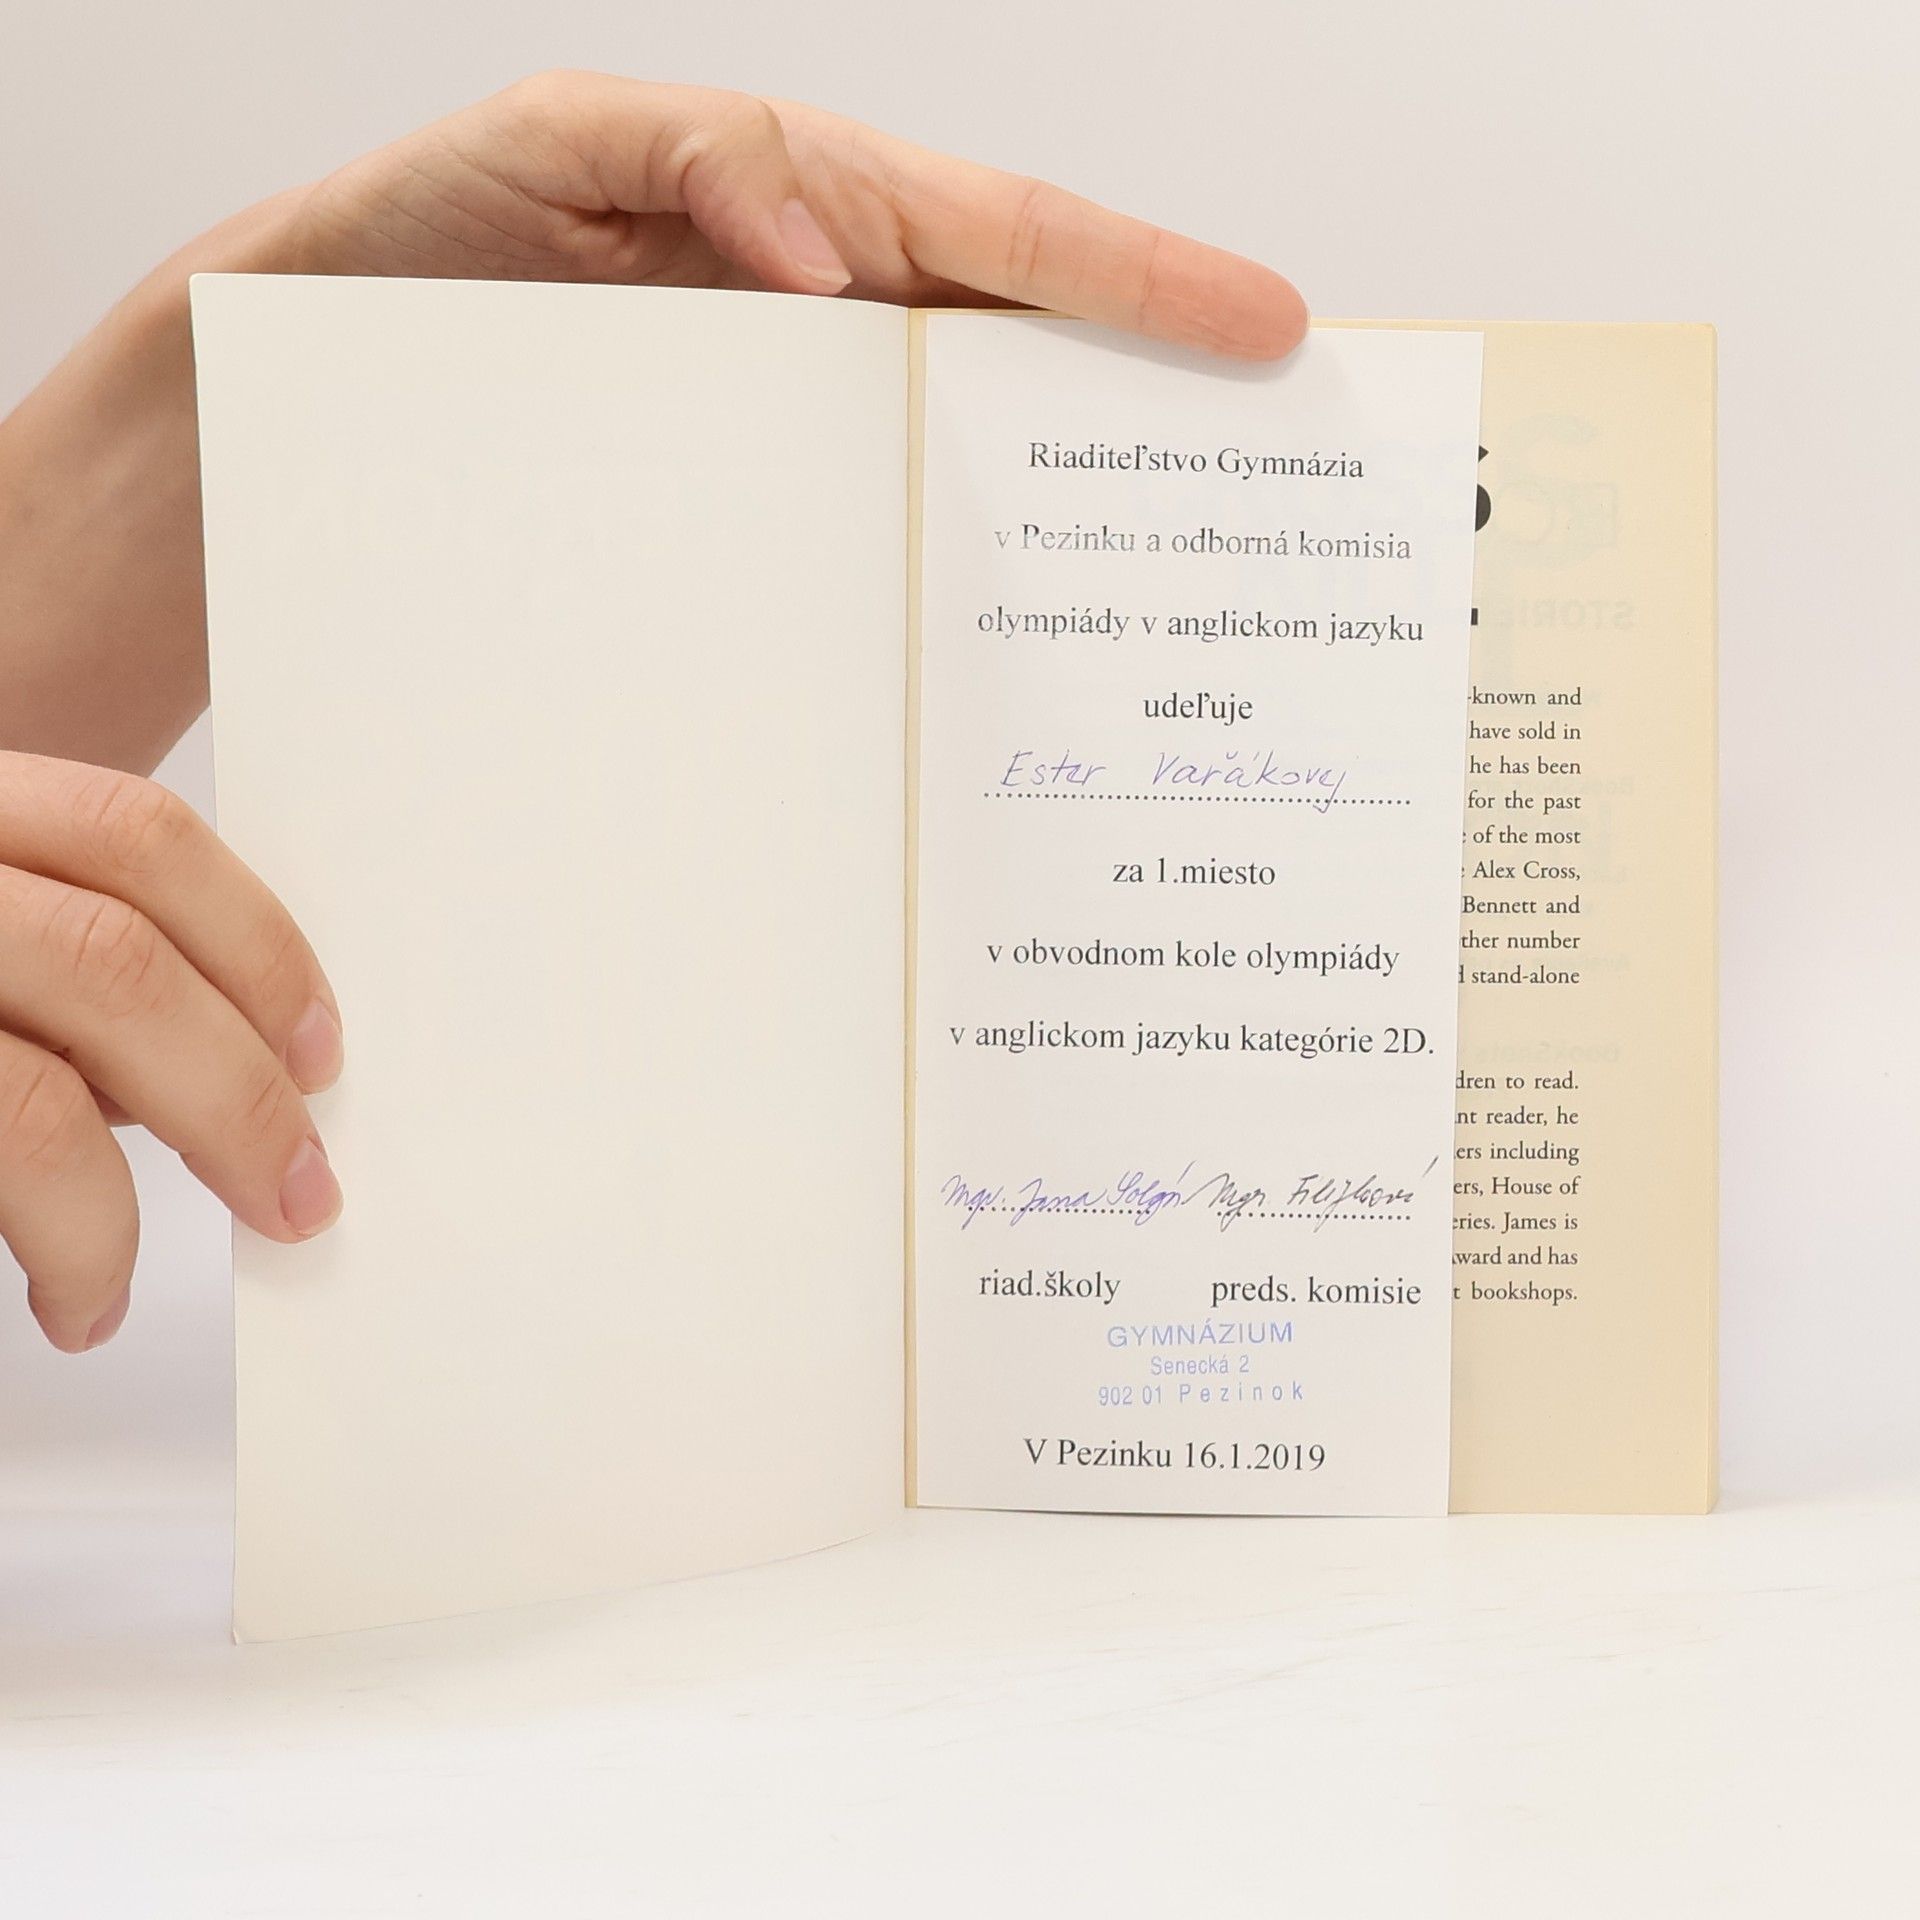 Riaditeľstvo Gymnázia
v Pezinku a odborná komisia
olympiády v anglickom jazyku
udeľuje
Ester Vařákovej
za 1.miesto
v obvodnom kole olympiády
v anglickom jazyku kategórie 2D.
Mgr. Jana Mgr.
riad.školy preds. komisie
GYMNÁZIUM
Senecká 2
902 01 Pezinok
V Pezinku 16.1.2019
-known and
have sold in
he has been
for the past
of the most
Alex Cross,
Bennett and
ther number
stand-alone
dren to read.
nt reader, he
ers including
ers, House of
eries. James is
ward and has
t bookshops.